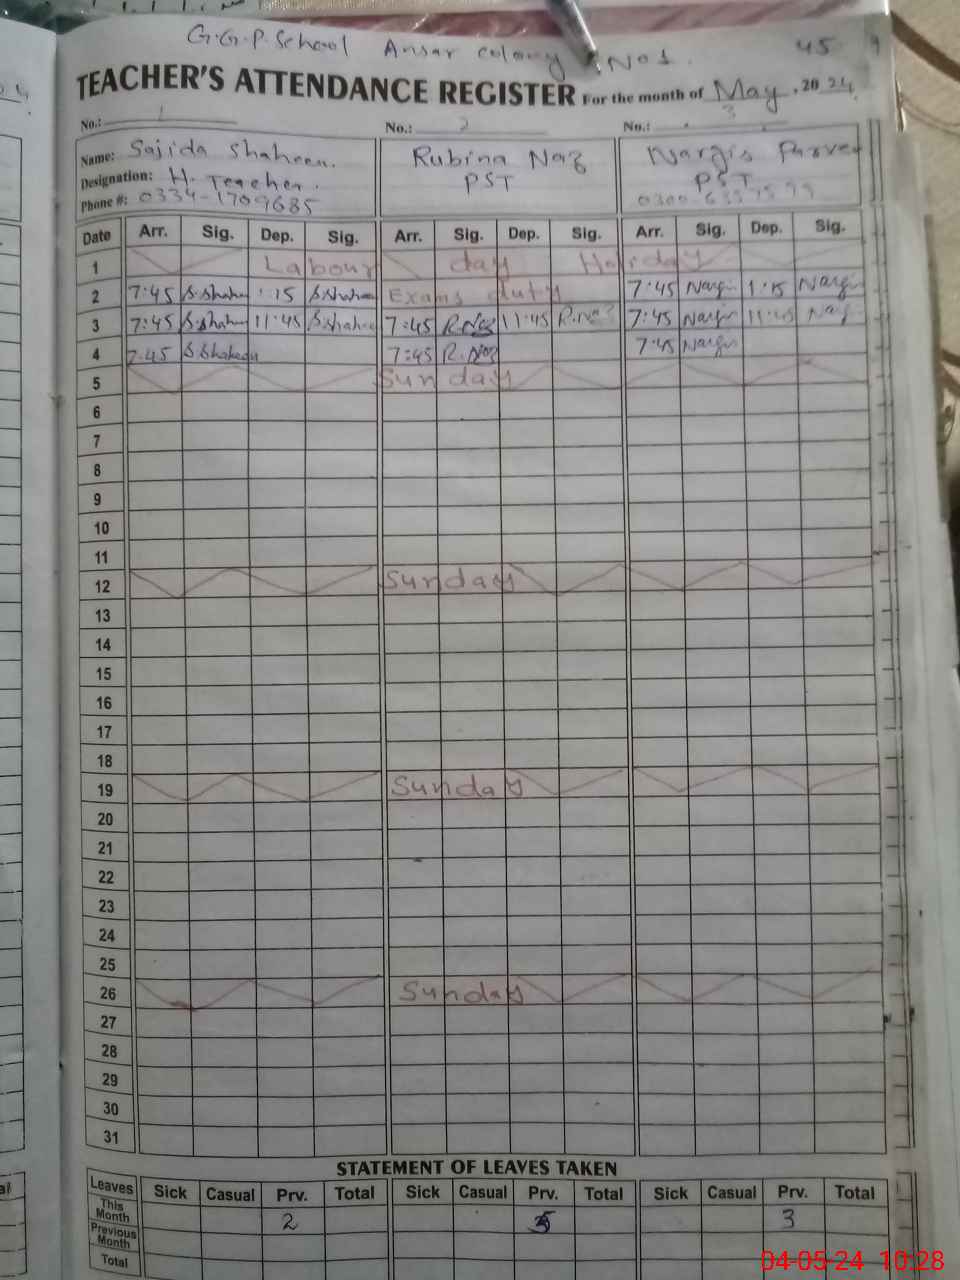 G.G.P. School Ansar colony No 1. 45
TEACHER'S ATTENDANCE REGISTER For the month of May, 2024
No.: 1 No.: 2 No.: 3
Name: Sajida Shaheen. Rubina Naz Nargis Parveen
Designation: H. Teacher. PST PST
Phone #: 0334-1709685
Date Arr. Sig. Dep. Sig. Arr. Sig. Dep. Sig. Arr. Sig. Dep. Sig.
1 Labour day Holiday
2 7:45 S.Shaheen 1:15 S.Shaheen Exams duty 7:45 Nargis 1:15 Nargis
3 7:45 S.Shaheen 11:45 S.Shaheen 7:45 R.Naz 11:45 R.Naz 7:45 Nargis 11:45 Nargis
4 7:45 S.Shaheen 7:45 R.Naz 7:45 Nargis
5 Sunday
6
7
8
9
10
11
12 Sunday
13
14
15
16
17
18
19 Sunday
20
21
22
23
24
25
26 Sunday
27
28
29
30
31
STATEMENT OF LEAVES TAKEN
Leaves Sick Casual Prv. Total Sick Casual Prv. Total Sick Casual Prv. Total
This Month 2 3
Previous Month
Total
04-05-24 10:28